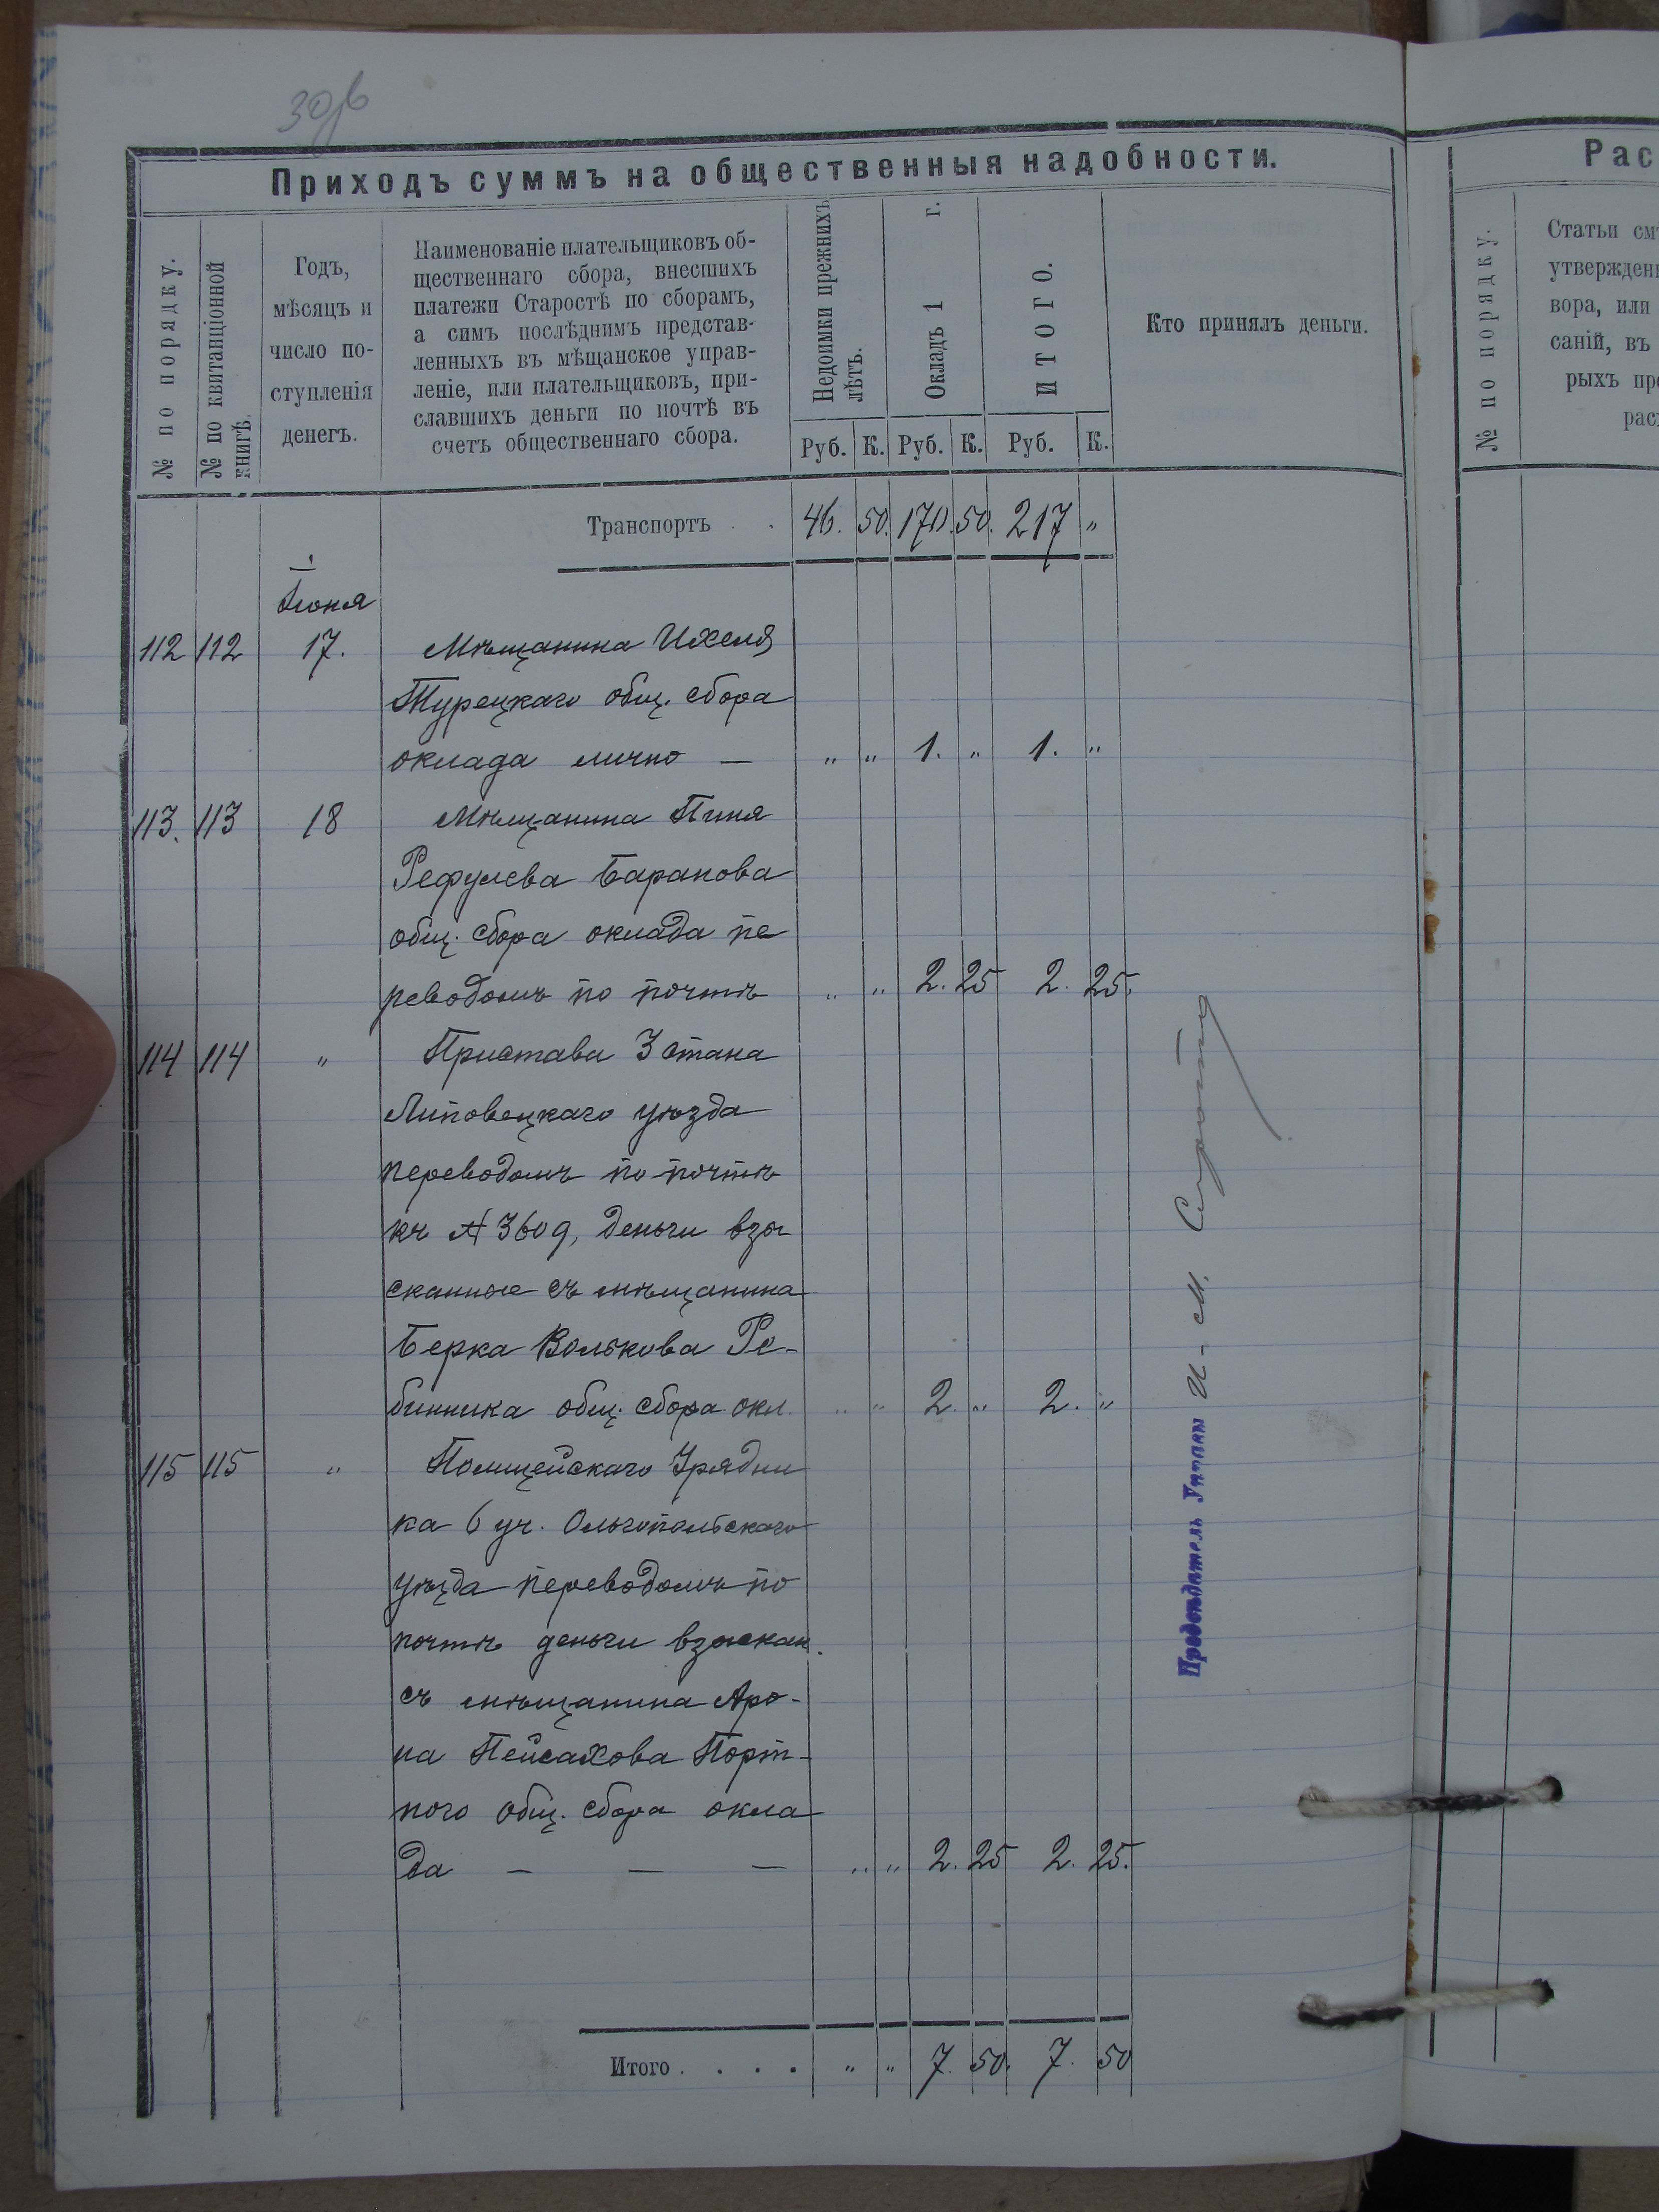 30об
Приходъ суммъ на общественныя надобности.
№ по порядку.
№ по квитанціонной книгѣ.
Годъ,
мѣсяцъ и
число по-
ступленія
денегъ.
Наименованіе плательщиковъ об-
щественнаго сбора, внесшихъ
платежи Старостѣ по сборамъ,
а симъ послѣднимъ представ-
ленныхъ въ мѣщанское управ-
леніе, или плательщиковъ, при-
славшихъ деньги по почтѣ въ
счетъ общественнаго сбора.
Недоимки прежнихъ лѣтъ.
Окладъ 1 г.
ИТОГО.
Кто принялъ деньги.
Руб. К. Руб. К. Руб. К.
Транспортъ . . 46. 50. 170. 50. 217 „
Іюня
112 112 17. Мѣщанина Ихеля
Турецкаго общ. сбора
оклада лично — „ „ 1. „ 1. „
113. 113 18 Мѣщанина Пиня
Рефулева Баранова
общ. сбора оклада пе
реводомъ по почтѣ „ „ 2. 25 2. 25.
114 114 „ Пристава 3 стана
Липовецкаго уѣзда
переводомъ по почтѣ
къ № 3609, деньги взы
сканные съ мѣщанина
Берка Волькова Ре-
бинника общ. сбора окл. „ „ 2. „ 2. „
115 115 „ Полицейскаго Урядни
ка 6 уч. Ольгопольскаго
уѣзда переводомъ по
почтѣ деньги взыскан.
съ мѣщанина Аро-
на Пейсахова Порт-
ного общ. сбора окла
да — — — „ „ 2. 25 2. 25.
Предсѣдатель Управы И. М.
Итого . . . . „ „ 7. 50. 7. 50
Рас
№ по порядку.
Статьи см
утвержден
вора, или
саній, въ
рыхъ пр
рас